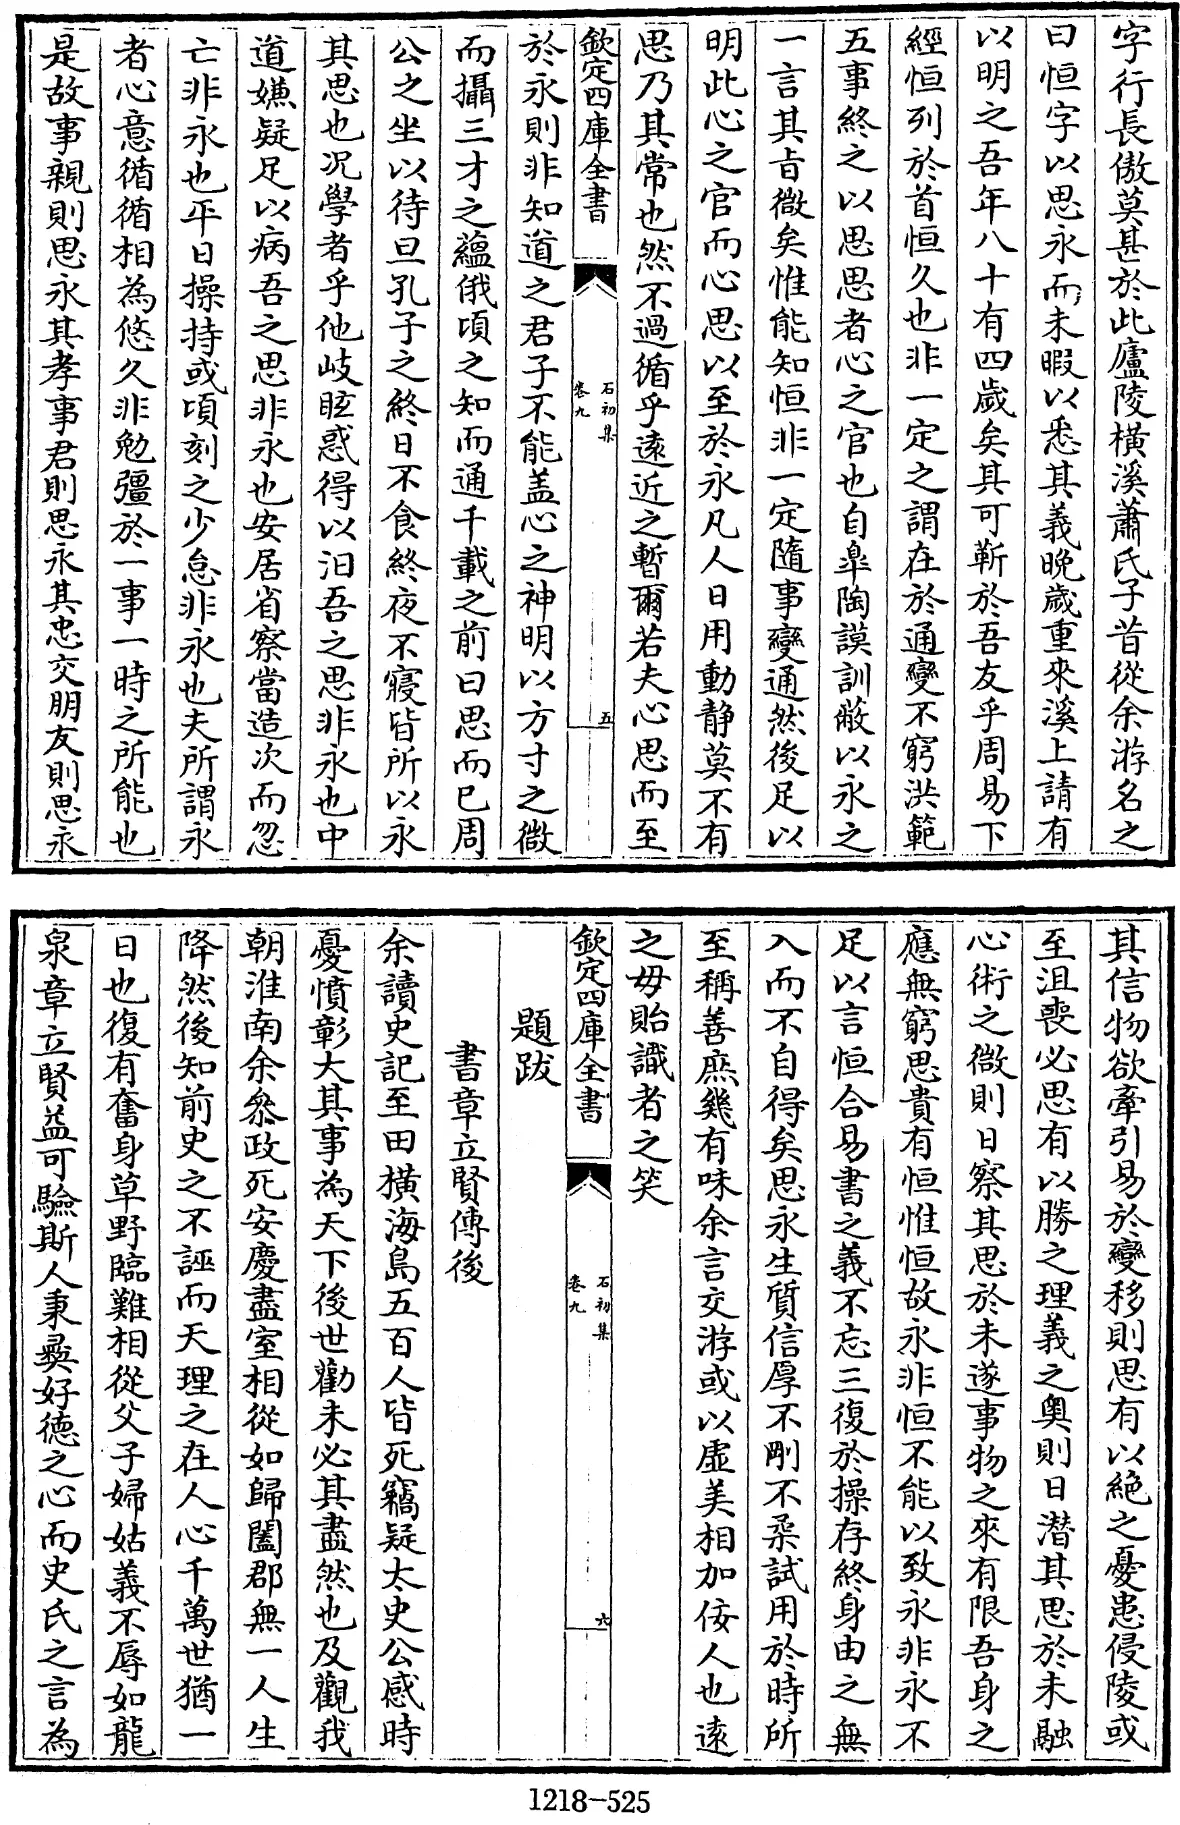 字行長傲莫甚於此廬陵横溪蕭氏子昔從余游名之
曰恒字以思永而未暇以悉其義晚歲重來溪上請有
以明之吾年八十有四歲矣其可靳於吾友乎周易下
經恒列於首恒久也非一定之謂在於通變不窮洪範
五事終之以思思者心之官也自臯陶謨訓敵以永之
一言其旨微矣惟能知恒非一定隨事變通然後足以
明此心之官而心思以至於永凡人日用動静莫不有
思乃其常也然不過循乎遠近之暫爾若夫心思而至
欽定四庫全書
石初集
卷九
五
於永則非知道之君子不能盖心之神明以方寸之微
而攝三才之蘊俄頃之知而通千載之前曰思而已周
公之坐以待旦孔子之終日不食終夜不寢皆所以永
其思也况學者乎他岐眩惑得以汨吾之思非永也中
道嫌疑足以病吾之思非永也安居省察當造次而忽
亡非永也平日操持或頃刻之少怠非永也夫所謂永
者心意循循相為悠久非勉彊於一事一時之所能也
是故事親則思永其孝事君則思永其忠交朋友則思永
其信物欲牽引易於變移則思有以絶之憂患侵陵或
至沮喪必思有以勝之理義之奥則日潜其思於未融
心術之微則日察其思於未遂事物之來有限吾身之
應無窮思貴有恒惟恒故永非恒不能以致永非永不
足以言恒合易書之義不忘三復於操存終身由之無
入而不自得矣思永生質信厚不剛不柔試用於時所
至稱善庶幾有味余言交游或以虚美相加佞人也逺
之毋貽識者之笑
欽定四庫全書
石初集
卷九
六
題跋
書章立賢傳後
余讀史記至田横海島五百人皆死竊疑太史公感時
憂憤彰大其事為天下後世勸未必其盡然也及觀我
朝淮南余叅政死安慶盡室相從如歸闔郡無一人生
降然後知前史之不誣而天理之在人心千萬世猶一
日也復有奮身草野臨難相從父子婦姑義不辱如龍
泉章立賢益可驗斯人秉彛好德之心而史氏之言為
1218-525